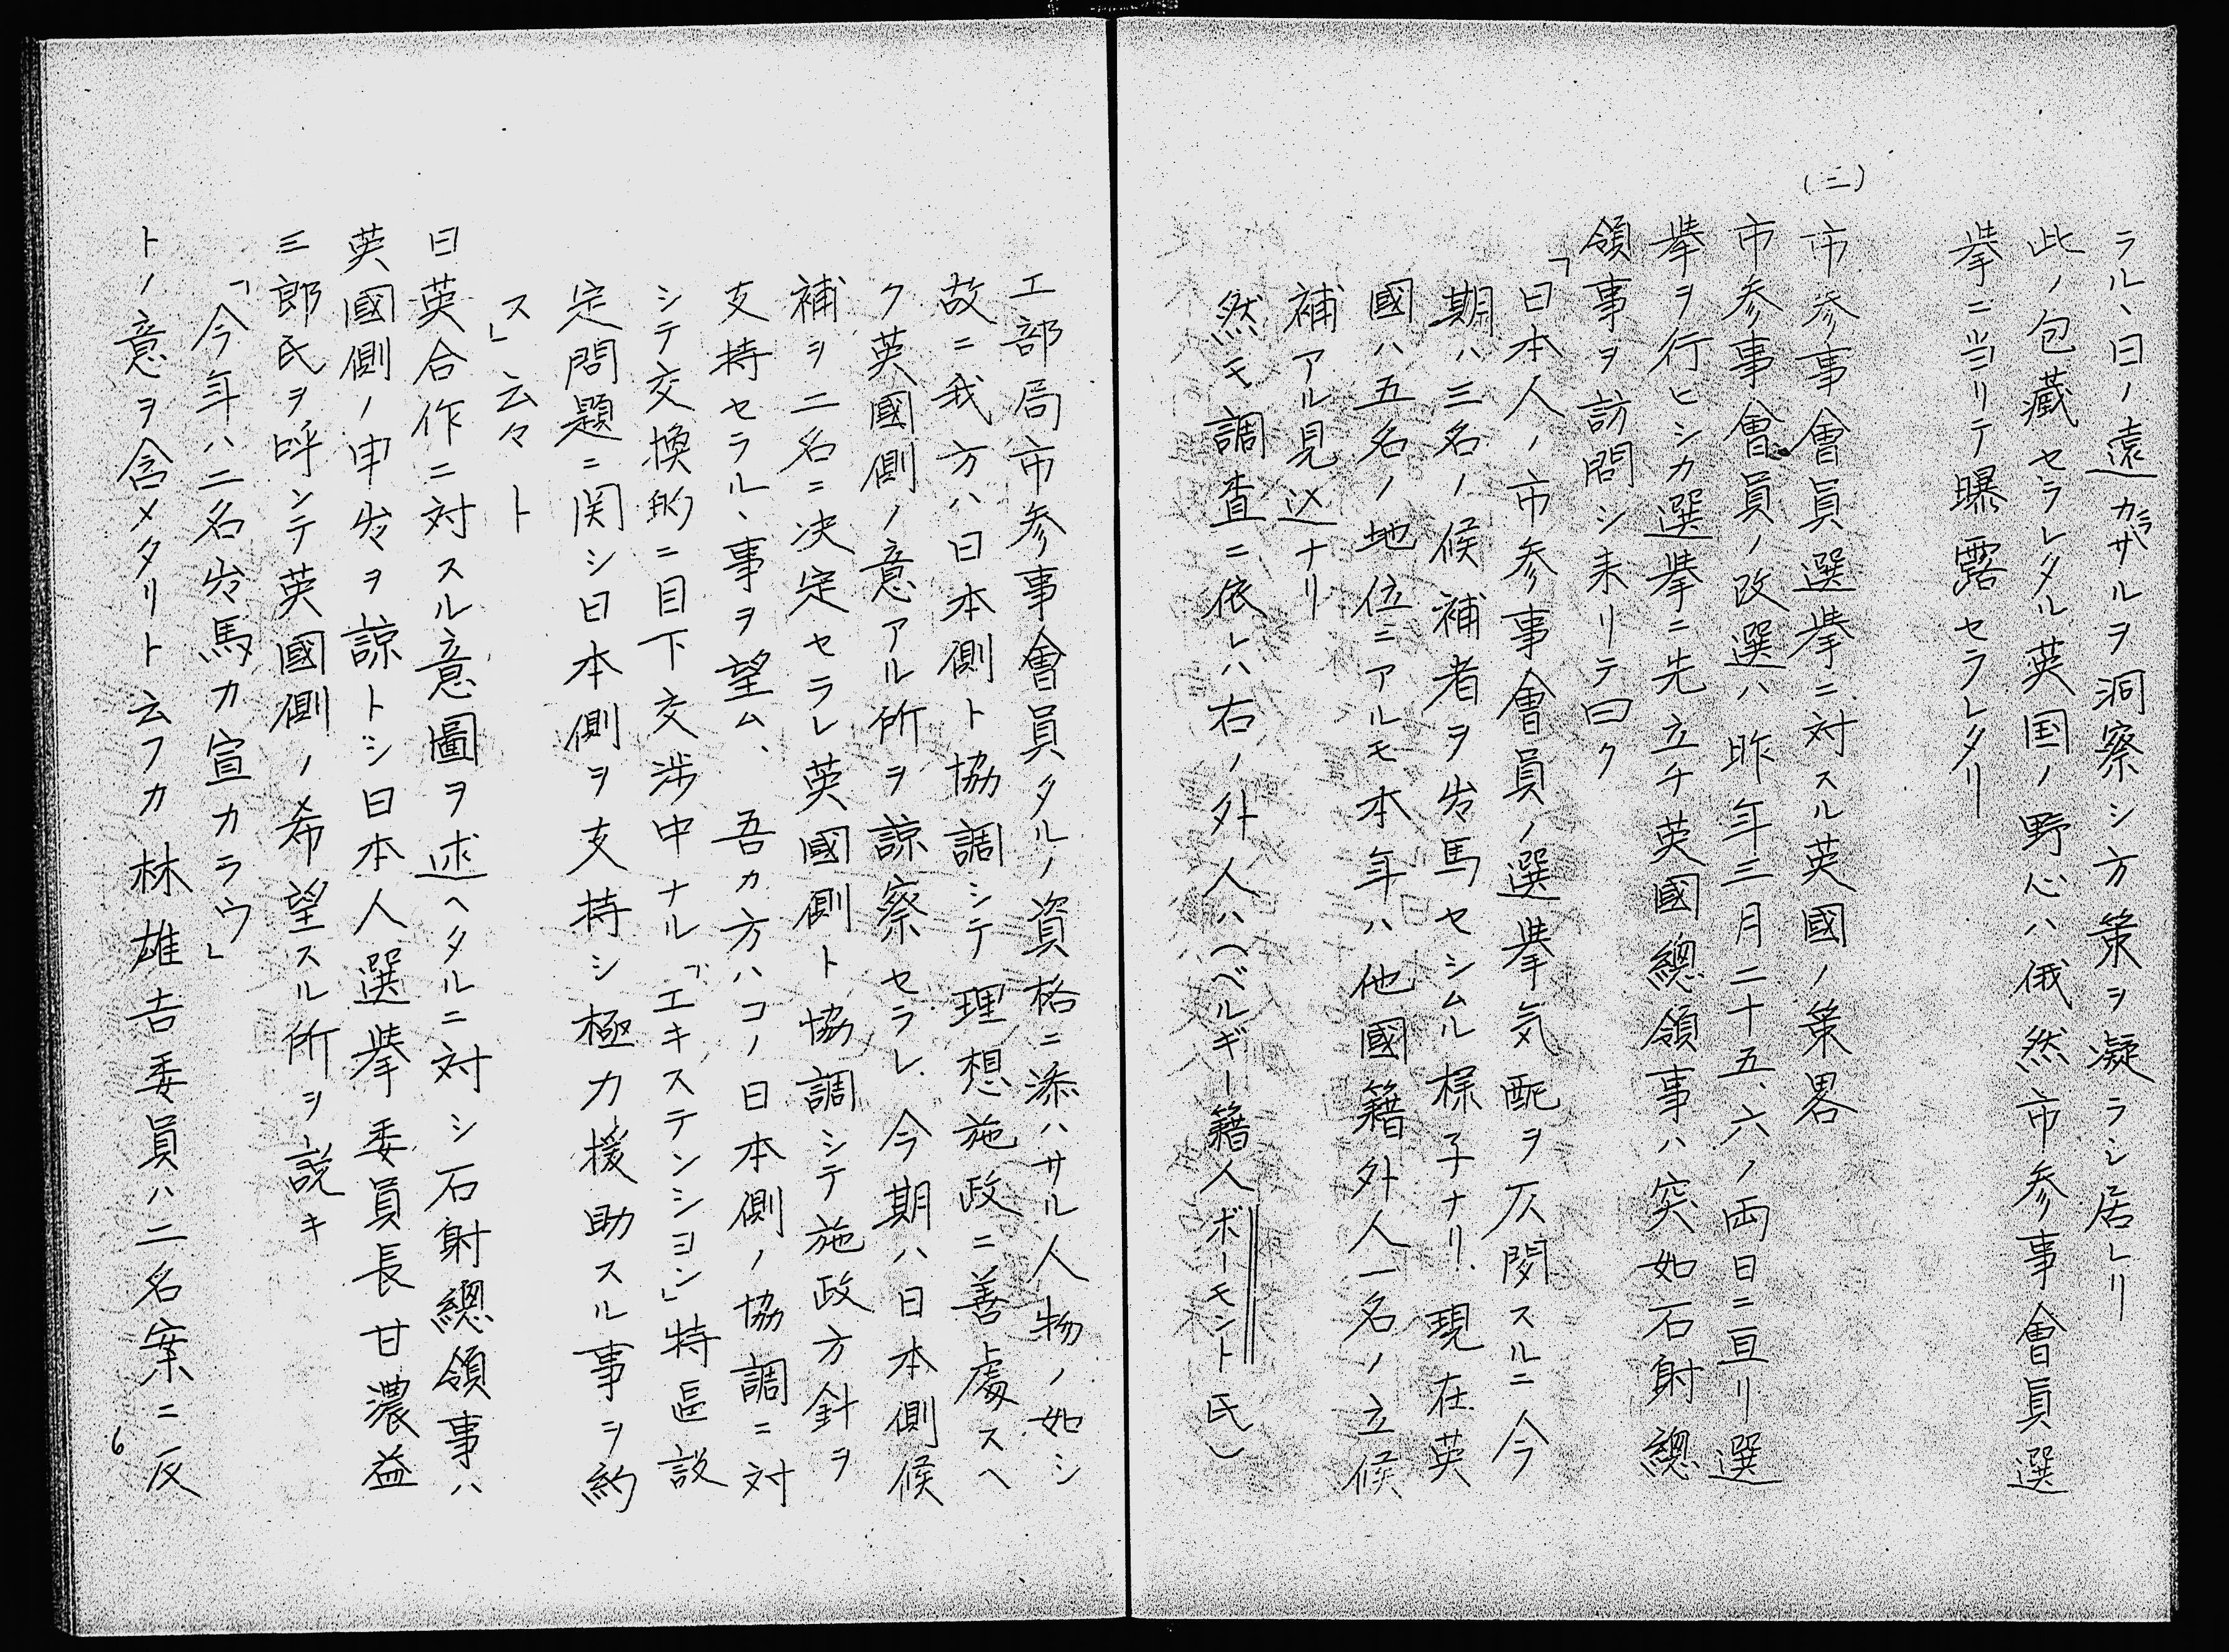 ラル、日ノ遠カラザルヲ洞察シ方策ヲ凝ラシ居レリ
此ノ包藏セラレタル英国ノ野心ハ俄然市参事會員選
挙ニ当リテ曝露セラレタリ
(三)
市参事會員選挙ニ対スル英國ノ策畧
市参事會員ノ改選ハ昨年三月二十五、六ノ両日ニ亘リ選
挙ヲ行ヒシカ選挙ニ先立チ英國總領事ハ突如石射總
領事ヲ訪問シ来リテ曰ク
「日本人ノ市参事會員ノ選挙気配ヲ仄聞スルニ今
期ハ三名ノ候補者ヲ出馬セシムル様子ナリ、現在英
國ハ五名ノ地位ニアルモ本年ハ他國籍外人一名ノ立候
補アル見込ナリ
然モ調査ニ依レハ右ノ外人ハ(ベルギー籍人ボーモント氏)
工部局市参事會員タルノ資格ニ添ハサル人物ノ如シ
故ニ我方ハ日本側ト協調シテ理想施政ニ善處スヘ
ク英國側ノ意アル所ヲ諒察セラレ今期ハ日本側候
補ヲ二名ニ決定セラレ英國側ト協調シテ施政方針ヲ
支持セラル、事ヲ望ム、吾カ方ハコノ日本側ノ協調ニ対
シテ交換的ニ目下交渉中ナル「エキステンシヨン」特區設
定問題ニ関シ日本側ヲ支持シ極力援助スル事ヲ約
ス」云々ト
日英合作ニ対スル意圖ヲ述ヘタルニ対シ石射總領事ハ
英國側ノ申出ヲ諒トシ日本人選挙委員長甘濃益
三郎氏ヲ呼ンテ英國側ノ希望スル所ヲ説キ
「今年ハ二名出馬カ宣カラウ」
トノ意ヲ含メタリト云フカ林雄吉委員ハ二名案ニ反
6